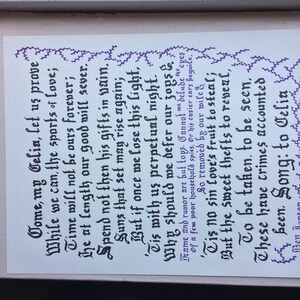 Come, my Celia, let us prove
While we can the sports of love;
Time will not be ours forever;
He at length our good will sever.
Spend not then his gifts in vain.
Suns that set may rise again;
But if once we lose this light,
'Tis with us perpetual night.
Why should we defer our joys?
Fame and rumor are but toys. Cannot we delude the eyes
Of a few poor household spies, Or his easier ears beguile,
So removed by our wile?
'Tis no sin love's fruit to steal;
But the sweet thefts to reveal,
To be taken, to be seen,
These have crimes accounted
been. Song: to Celia
Ben